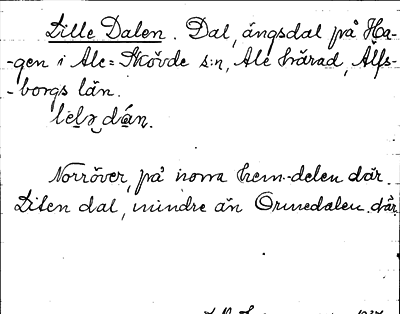 Lille Dalen. Dal, ängsdal på Ha-
-gen i Ale-Skövde s:n, Ale härad, Älfs-
-borgs län.
Norröver, på norra hem-delen där.
Liten dal, mindre än Ormedalen där.